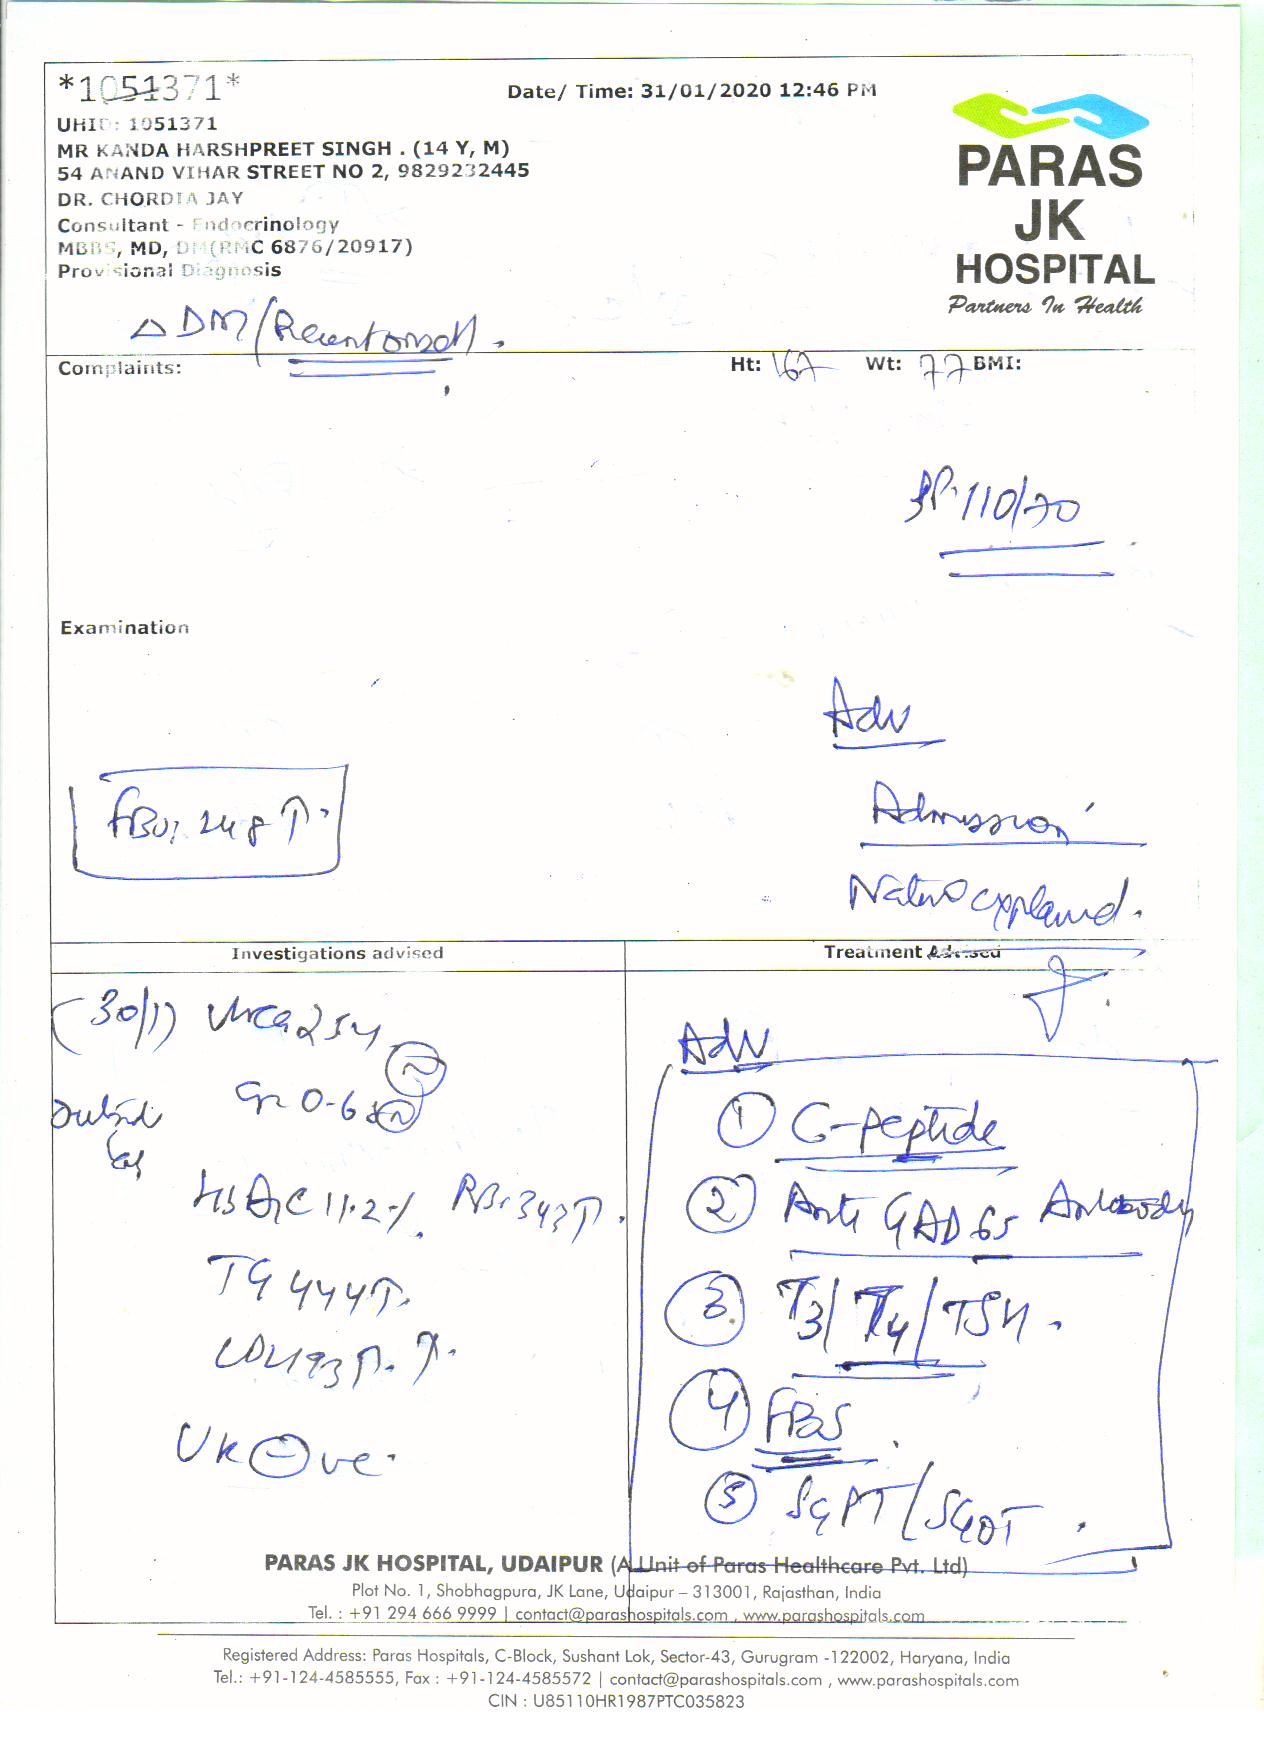 *1051371*
Date/ Time: 31/01/2020 12:46 PM
UHID: 1051371
MR KANDA HARSHPREET SINGH . (14 Y, M)
54 ANAND VIHAR STREET NO 2, 9829232445
DR. CHORDIA JAY
Consultant - Endocrinology
MBBS, MD, DM(RMC 6876/20917)
Provisional Diagnosis
PARAS
JK
HOSPITAL
Partners In Health
Δ DM/(Recent onset).
Complaints:
Ht: 167 Wt: 77 BMI:
BP. 110/70
Examination
Adv
FBS: 248 ↑.
Admission
Nature explained.
Investigations advised
Treatment Advised
(30/1)
Adv
Outside
① C-peptide
HbA1C 11.2%. RBS 343↑.
② Anti GAD 65 Antibody
TG 444↑.
③ T3/T4/TSH.
④ FBS.
UK ⊖ve.
⑤ SGPT/SGOT.
PARAS JK HOSPITAL, UDAIPUR (A Unit of Paras Healthcare Pvt. Ltd)
Plot No. 1, Shobhagpura, JK Lane, Udaipur – 313001, Rajasthan, India
Tel. : +91 294 666 9999 | contact@parashospitals.com , www.parashospitals.com
Registered Address: Paras Hospitals, C-Block, Sushant Lok, Sector-43, Gurugram -122002, Haryana, India
Tel.: +91-124-4585555, Fax : +91-124-4585572 | contact@parashospitals.com , www.parashospitals.com
CIN : U85110HR1987PTC035823